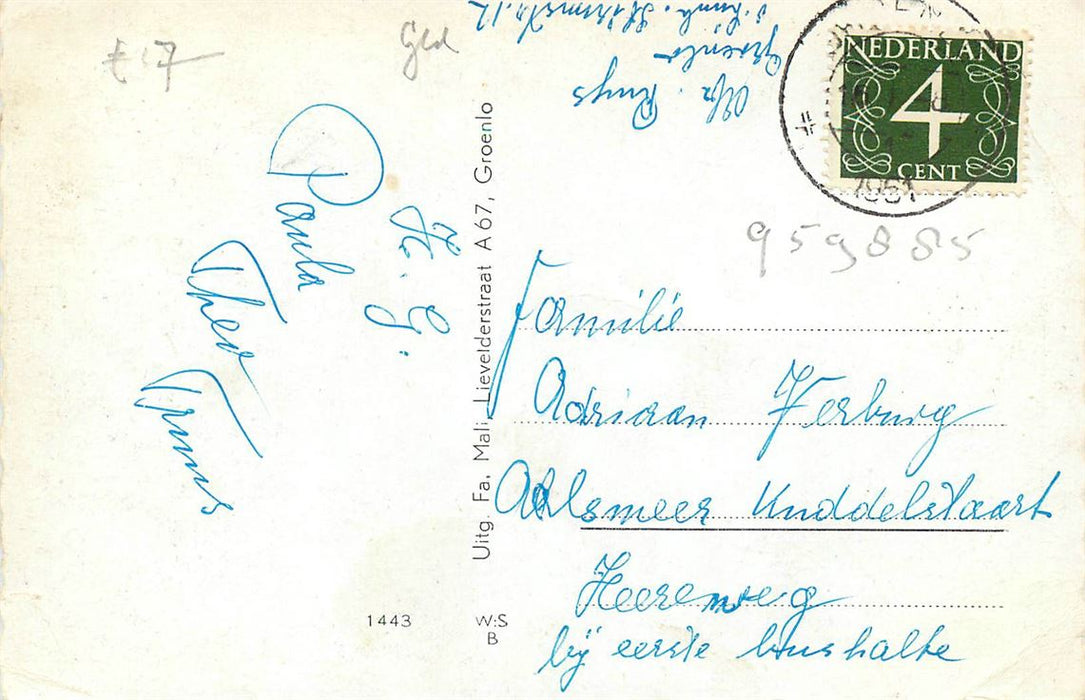 £ 17
Gld
Afz. Ruys
Groenlo
H. G.
Paula
Theo
Truus
Uitg. Fa. Mali, Lievelderstraat A 67, Groenlo
1443
W:S
B
NEDERLAND
4
CENT
1951
959885
Familie
Adriaan Verburg
Aalsmeer Kuddelstaart
Heerenweg
bij eerste bushalte